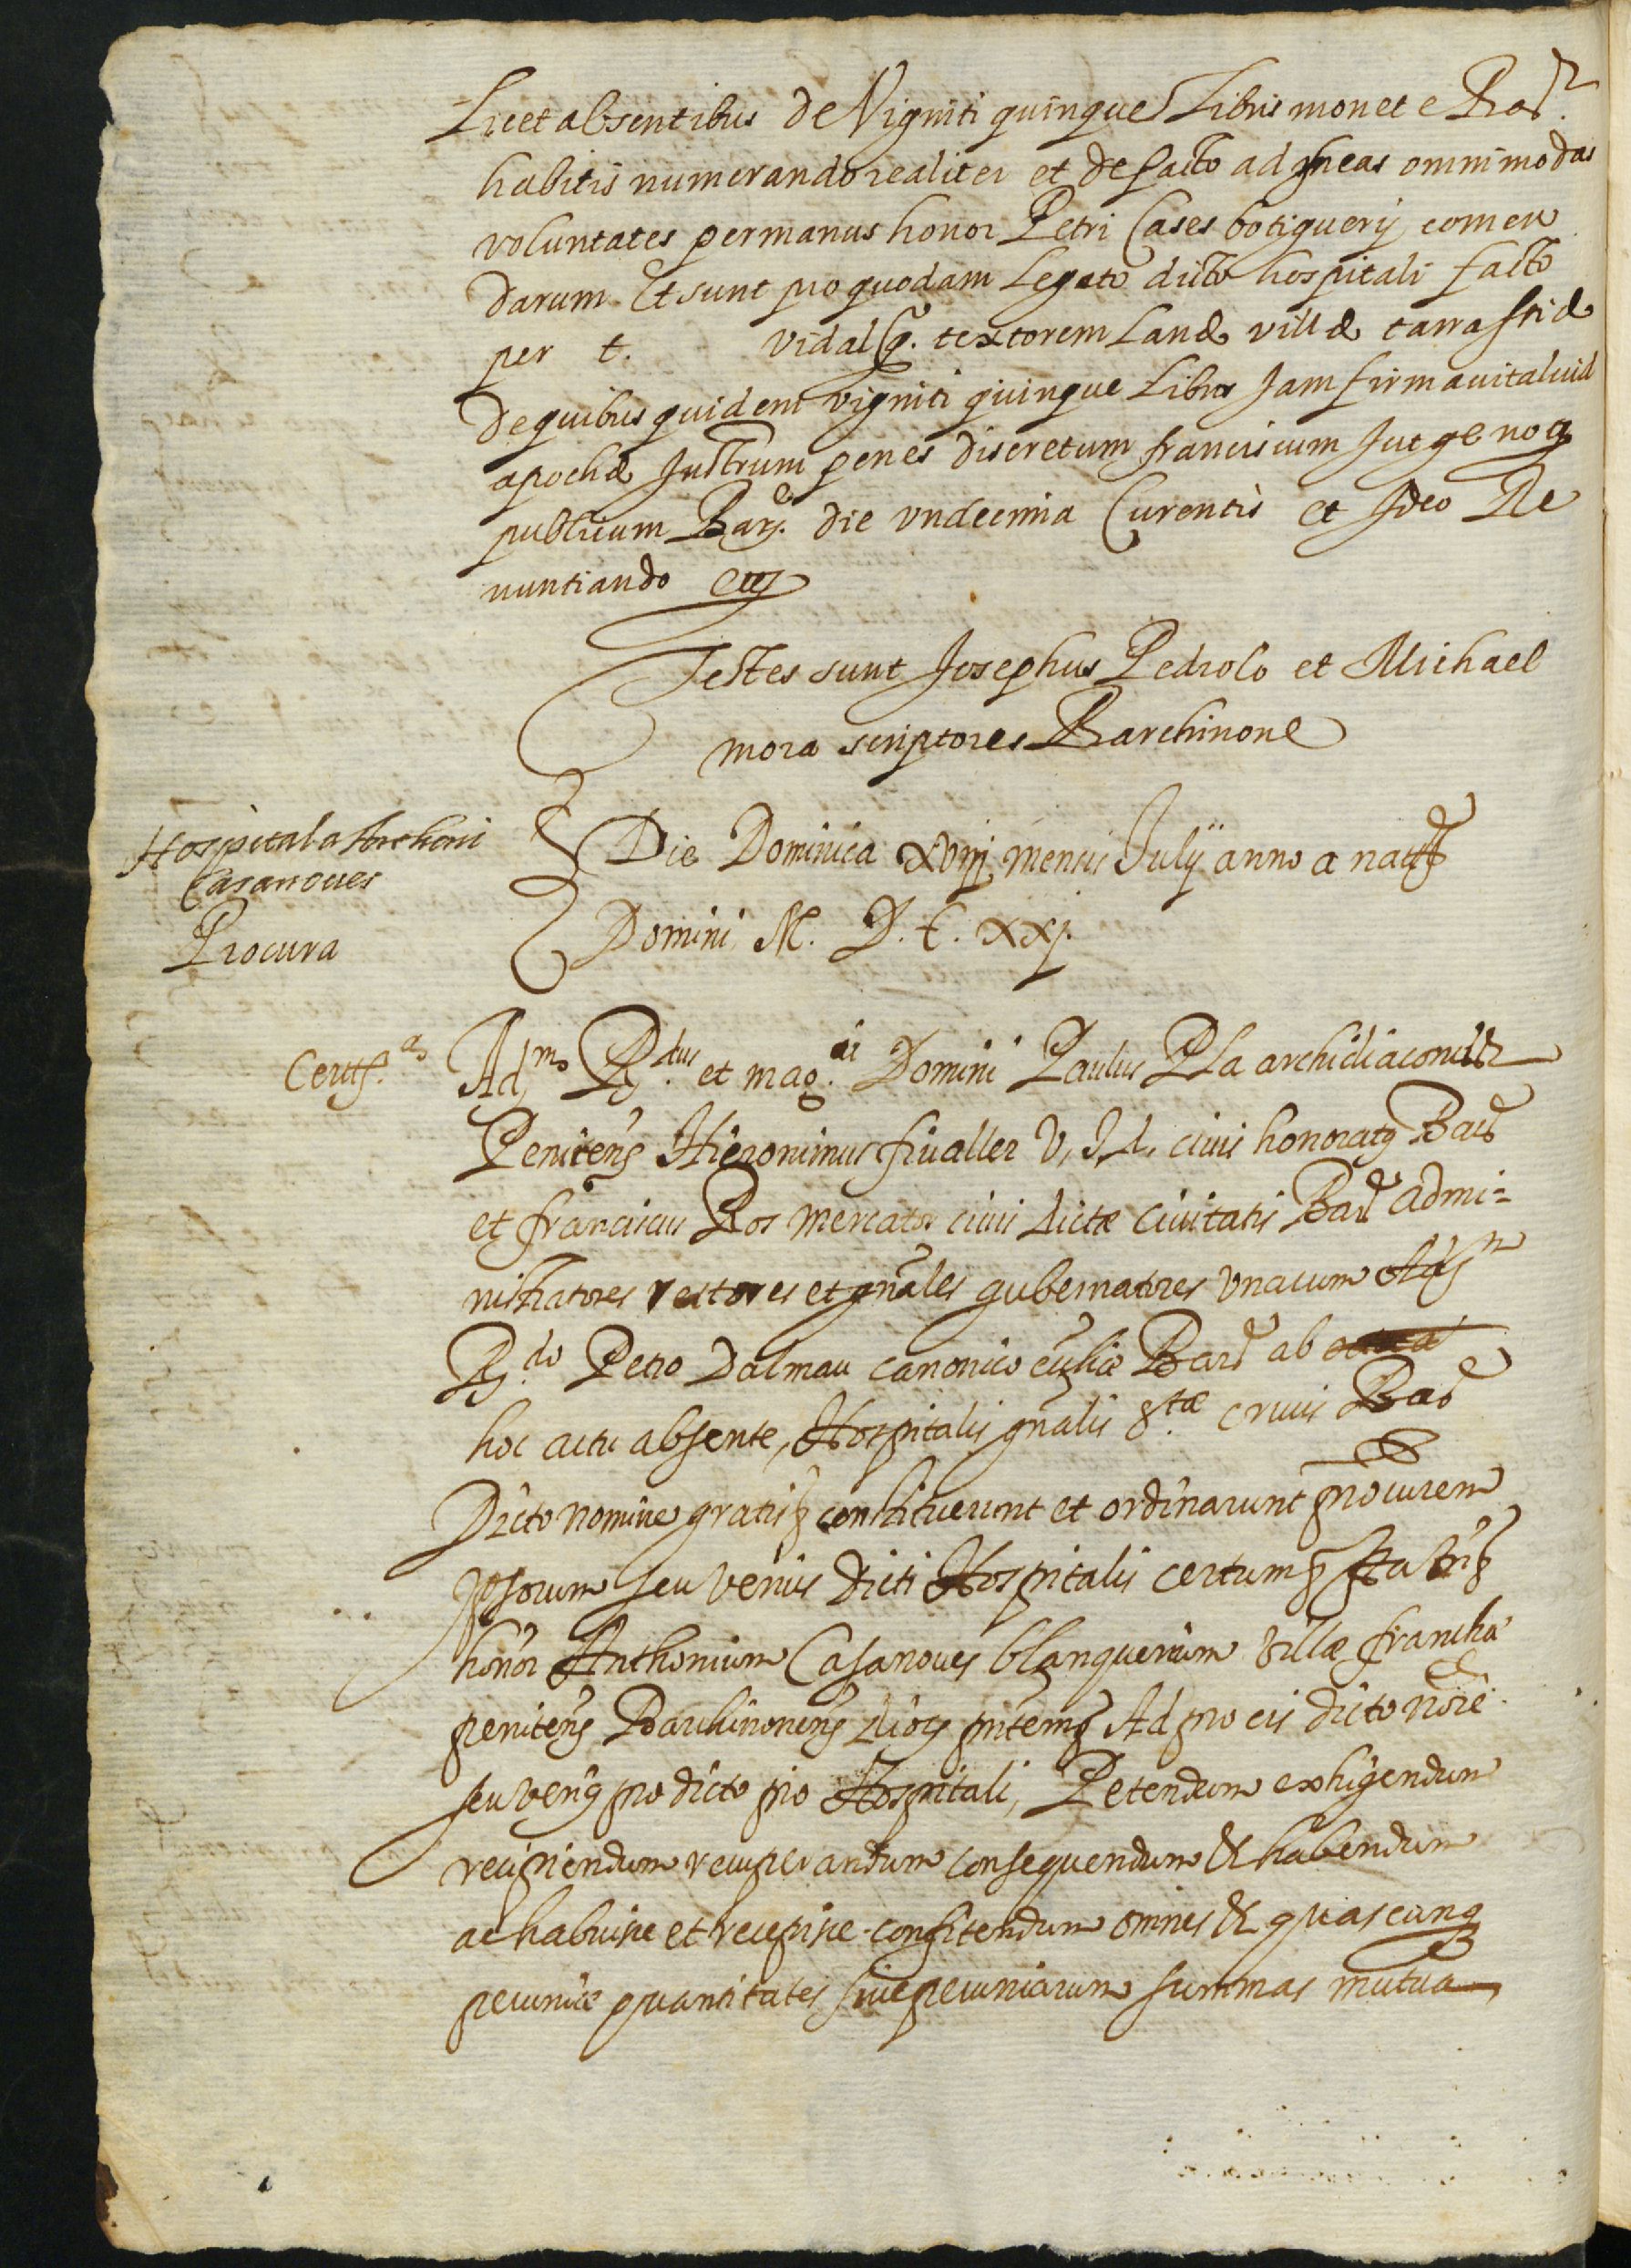 Licet absentibus de Viginti quinque Libris monete Bar.
habitis numerando realiter et de facto ad meas omnimodas
voluntates per manus honor Petri Cases botiguerij comen
darum Et sunt pro quodam Legato dicto hospitali facto
per t. Vidal q. textorem Lanæ villæ tarrassiæ
de quibus quidem viginti quinque Libris Jam firmavit aluid
apochæ Instrum penes discretum franciscum Jutge notm
publicum Barc. die undecima Currentis et Ideo Re
nuntiando etc
Testes sunt Josephus Pedrolo et Michael
mora scriptores Barchinone
Hospital a Anthoni
Casanoves
Procura
Die Dominica xviij mensis Julij anno a natte
Domini M. D. C. xxj.
Certif.
Adm. Rdus. et mag.ci Domini Paulus Pla archidiaconus
Penitens Hieronimus fivaller V. J. d. civis honoratus Barc
et franciscus Ros mercator civis dictæ Civitatis Barc admi=
nistratores rectores et gnales gubernatores unacum Adm
R.do Petro Dalmau canonico ecclæ Barc ab
hoc actu absente, Hospitalis gnalis S.tæ crucis Barc
Dicto nomine gratis constituerunt et ordinarunt procurem
ipsorum seu verius dicti Hospitalis certum
honor Anthonium Casanoves blanquerium Villæ franchæ
penitens Barchinonens Dioc pntem Ad pro eis dicto noie
seu verius pro dicto pio Hospitali, Petendum exhigendum
recipiendum recuperandum consequendum & habendum
ac habuisse et recepisse confitendum omnes & quascunq
pecuniæ quantitates sive pecuniarum summas mutua